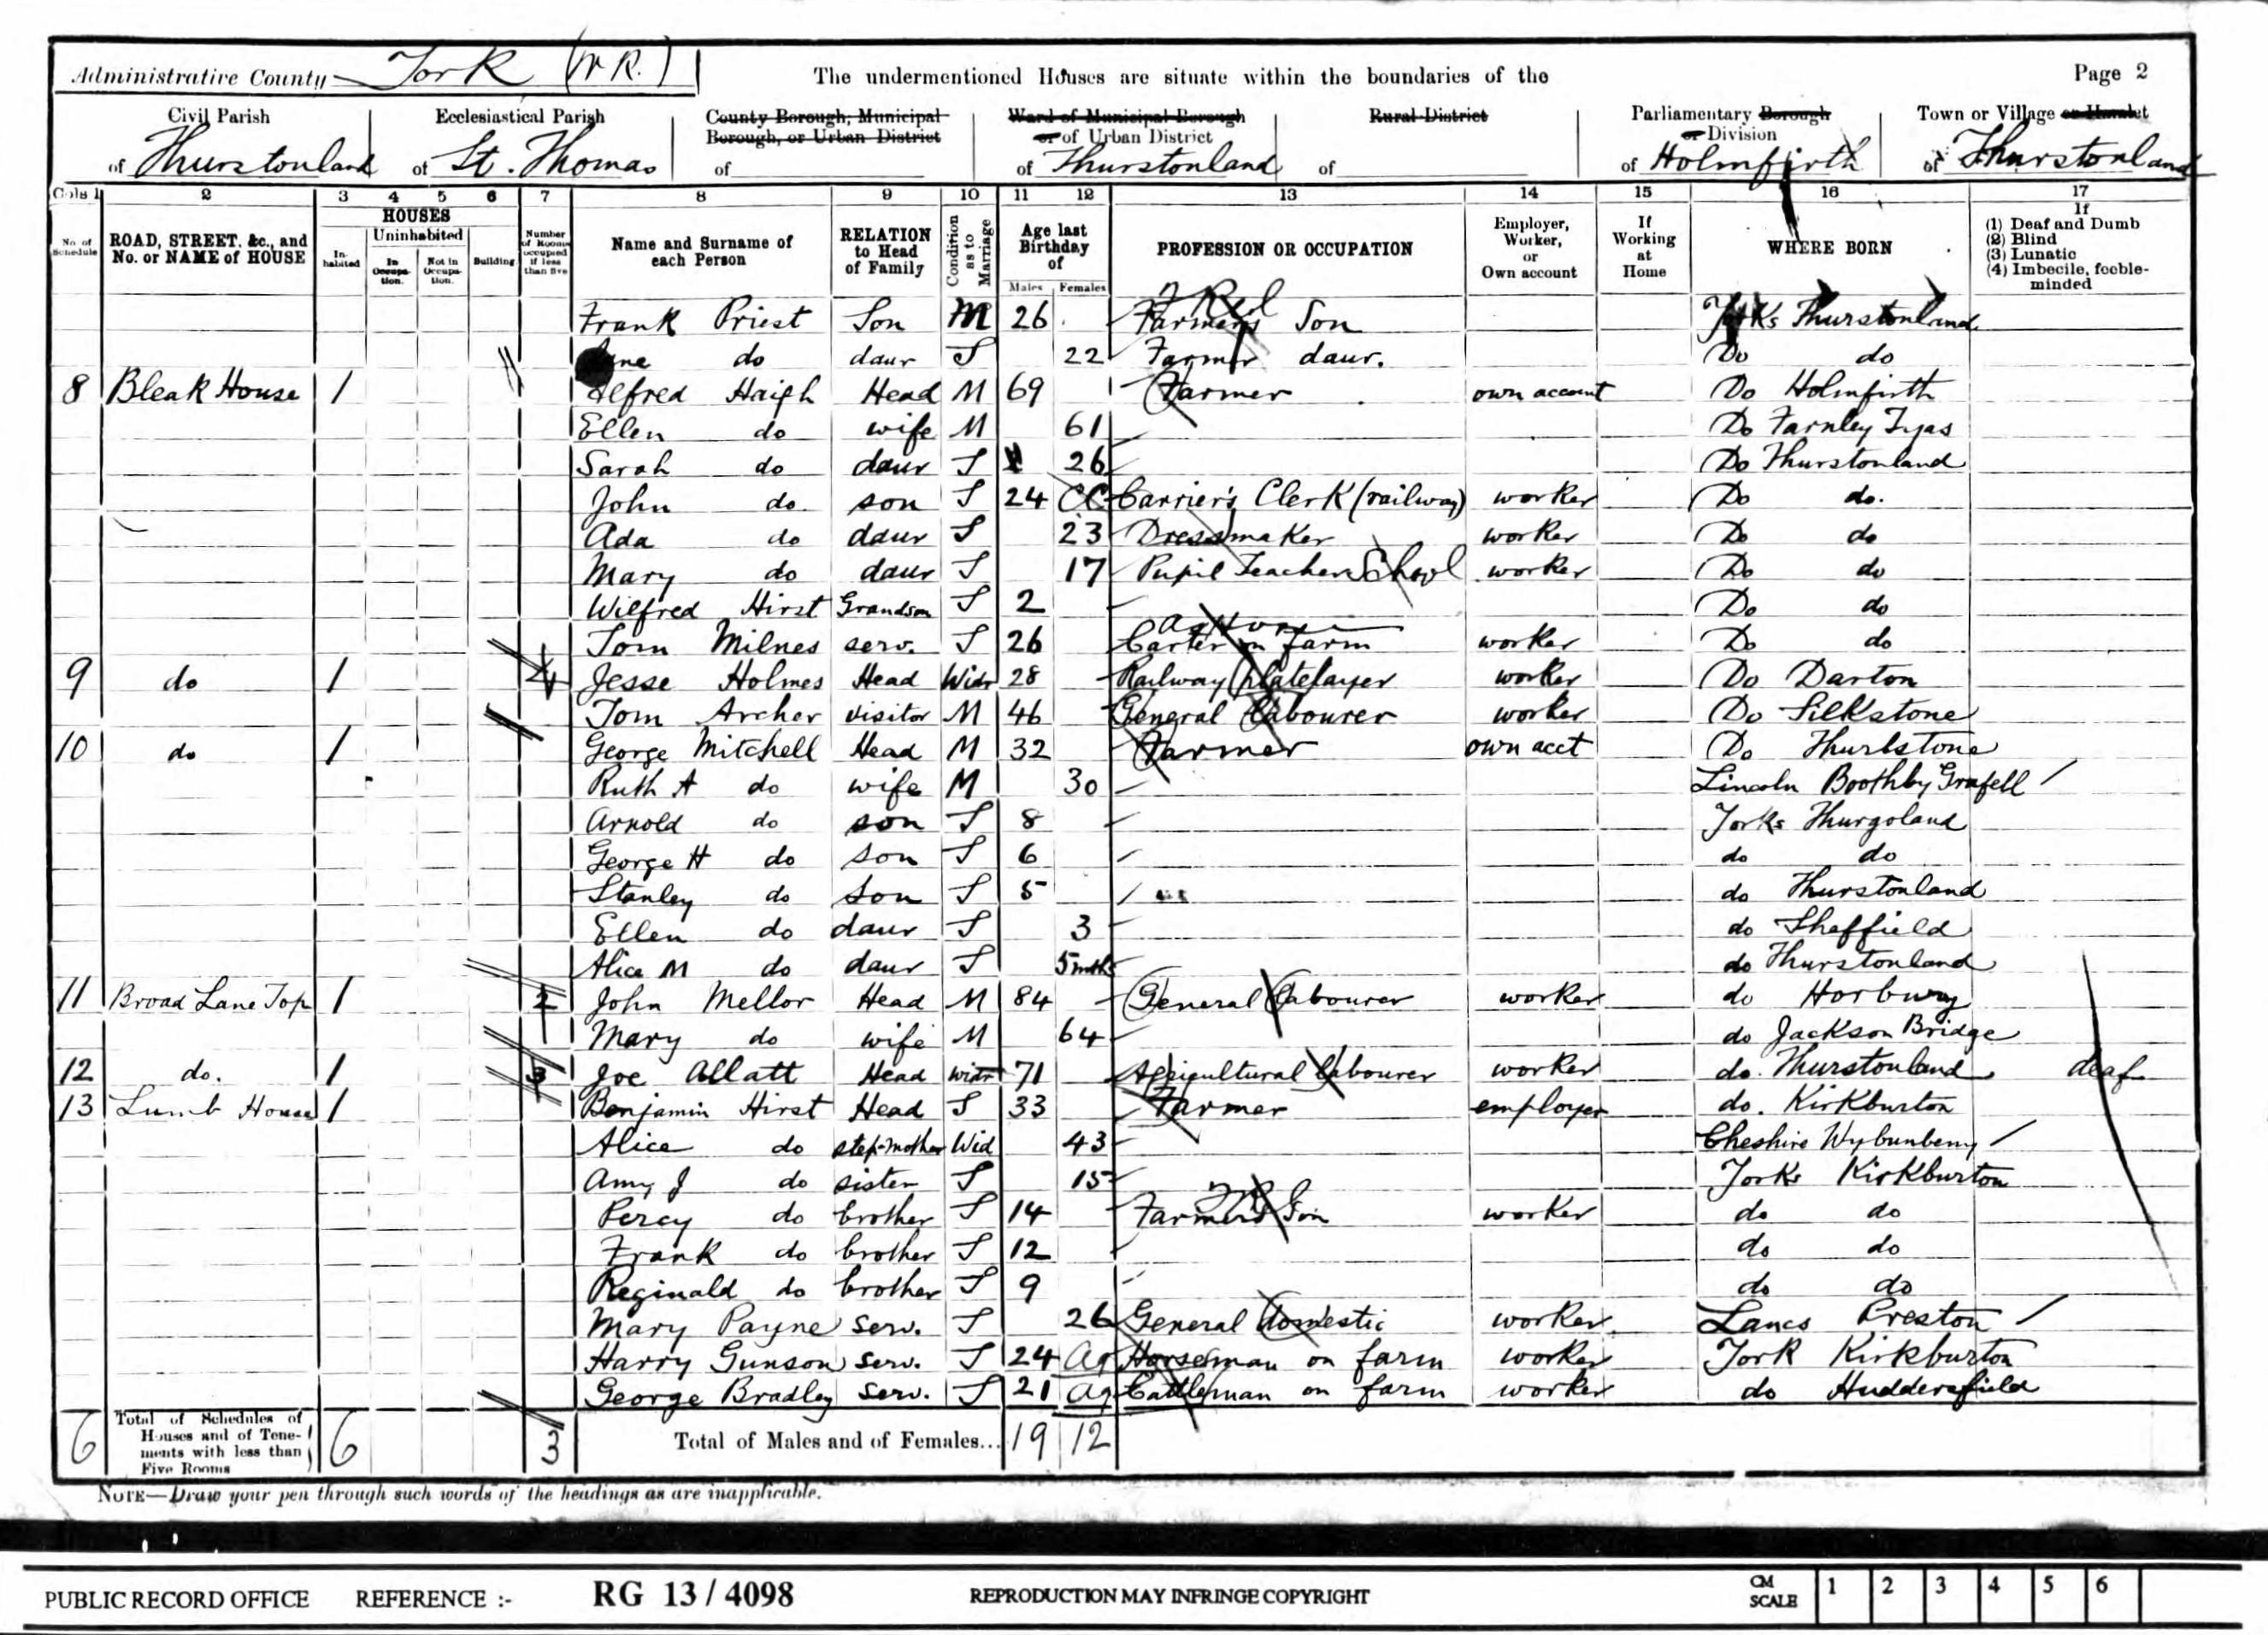 Administrative County York (W R.) The undermentioned Houses are situate within the boundaries of the Page 2
Civil Parish Ecclesiastical Parish County Borough, Municipal Borough, or Urban District Ward of Municipal Borough or of Urban District Rural District Parliamentary Borough or Division Town or Village or Hamlet
of Thurstonland of St. Thomas of of Thurstonland of of Holmfirth of Thurstonland
Cols 1 2 3 4 5 6 7 8 9 10 11 12 13 14 15 16 17
No. of Schedule ROAD, STREET, &c., and No. or NAME of HOUSE HOUSES Inhabited Uninhabited In Occupation. Not in Occupation. Building Number of Rooms occupied if less than five Name and Surname of each Person RELATION to Head of Family Condition as to Marriage Age last Birthday of Males Females PROFESSION OR OCCUPATION Employer, Worker, or Own account If Working at Home WHERE BORN If (1) Deaf and Dumb (2) Blind (3) Lunatic (4) Imbecile, feeble-minded
Frank Priest Son M 26 Farmer's Son Yorks Thurstonland
do daur S 22 Farmer daur. Do do
8 Bleak House 1 Alfred Haigh Head M 69 Farmer own account Do Holmfirth
Ellen do wife M 61 Do Farnley Tyas
Sarah do daur S 26 Do Thurstonland
John do son S 24 CC Carrier's Clerk (railway) worker Do do.
Ada do daur S 23 Dressmaker worker Do do
Mary do daur S 17 Pupil Teacher School worker Do do
Wilfred Hirst Grandson S 2 Do do
Tom Milnes serv. S 26 Carter on farm worker Do do
9 do 1 4 Jesse Holmes Head Widr 28 Railway platelayer worker Do Darton
Tom Archer visitor M 46 General Labourer worker Do Silkstone
10 do 1 George Mitchell Head M 32 Farmer own acct Do Thurlstone
Ruth A do wife M 30 Lincoln Boothby Grafell
Arnold do son S 8 Yorks Thurgoland
George H do son S 6 do do
Stanley do son S 5 do Thurstonland
Ellen do daur S 3 do Sheffield
Alice M do daur S 5 mths do Thurstonland
11 Broad Lane Top 1 2 John Mellor Head M 84 General Labourer worker do Horbury
Mary do wife M 64 do Jackson Bridge
12 do. 1 3 Joe Allatt Head widr 71 Agricultural Labourer worker do. Thurstonland deaf
13 Lumb House 1 Benjamin Hirst Head S 33 Farmer employer do. Kirkburton
Alice do step-mother Wid 43 Cheshire Wybunbery
Amy J do sister S 15 Yorks Kirkburton
Percy do brother S 14 Farmers Son worker do do
Frank do brother S 12 do do
Reginald do brother S 9 do do
Mary Payne serv. S 26 General domestic worker Lancs Preston
Harry Gunson serv. S 24 Ag Horseman on farm worker York Kirkburton
George Bradley serv. S 21 Ag Cattleman on farm worker do Huddersfield
6 Total of Schedules of Houses and of Tenements with less than Five Rooms 6 3 Total of Males and of Females... 19 12
NOTE—Draw your pen through such words of the headings as are inapplicable.
PUBLIC RECORD OFFICE REFERENCE :- RG 13 / 4098 REPRODUCTION MAY INFRINGE COPYRIGHT CM SCALE 1 2 3 4 5 6